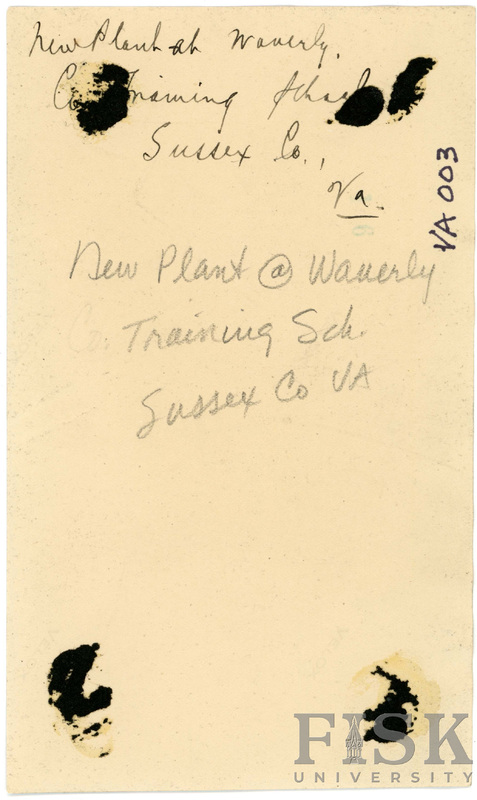 New Plant at Waverly,
Co. Training School
Sussex Co.,
Va.
VA 003
New Plant @ Waverly
Co. Training Sch.
Sussex Co VA
FISK
UNIVERSITY